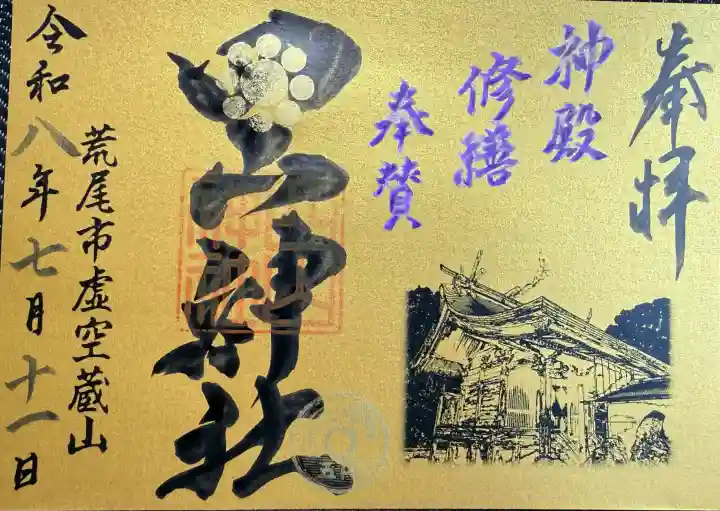 奉拝
神殿
修繕
奉賛
四山神社
荒尾市虚空蔵山
令和八年七月十一日